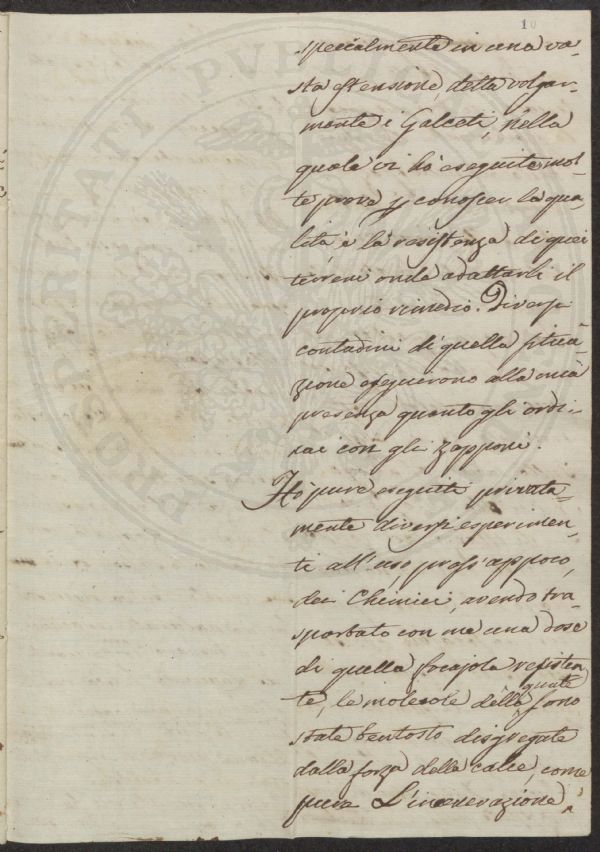 10
specialmente in una va-
sta estensione, detta volgar-
mente i Galceti, nella
quale vi hò eseguite mol-
te prove p conoscer la qua-
lità, e la resistenza di quei
terreni onde adattarli il
proprio rimedio. Diversi
contadini di quella situa-
zione eseguerono alla mia
presenza quanto gli ordi-
nai con gli zapponi.
Hò pure eseguiti privata-
mente diversi esperimen-
ti all'uso, press'appoco,
dei Chimici, avendo tra-
sportato con me una dose
di quella focajola resisten-
te, le molecole della quale sono
state bentosto disgregate
dalla forza della calce, come
pure L'incenerazione,
PROSPERITATI PUBLICAE